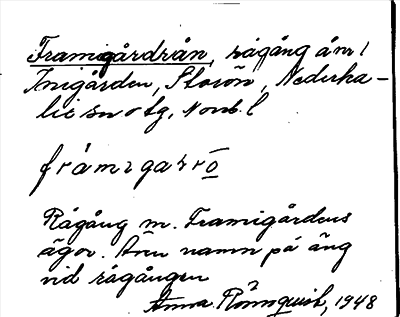 Framigårdrån, rågång å nr 1
Inigården, Storön, Nederka-
lix sn o tg, Norrb. l
Rågång m. Framigårdens
ägor. Även namn på äng
vid rågången
Anna Rönnquist, 1948